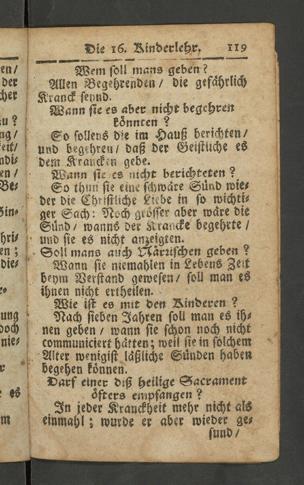 Die 16. Kinderlehr. 119
Wem soll mans geben?
Allen Begehrenden / die gefährlich
Kranck seynd.
Wann sie es aber nicht begehren
könnten?
So sollens die im Hauß berichten /
und begehren / daß der Geistliche es
dem Krancken gebe.
Wann sie es nicht berichteten?
So thun sie eine schwäre Sünd wie-
der die Christliche Liebe in so wichti-
ger Sach: Noch grösser aber wäre die
Sünd / wanns der Krancke begehrte /
und sie es nicht anzeigten.
Soll mans auch Närrischen geben?
Wann sie niemahlen in Lebens Zeit
beym Verstand gewesen / soll man es
ihnen nicht ertheilen.
Wie ist es mit den Kinderen?
Nach sieben Jahren soll man es ih-
nen geben / wann sie schon noch nicht
communiciert hätten; weil sie in solchem
Alter wenigist läßliche Sünden haben
begehen können.
Darf einer diß heilige Sacrament
öfters empfangen?
In jeder Kranckheit mehr nicht als
einmahl; wurde er aber wieder ge-
sund /